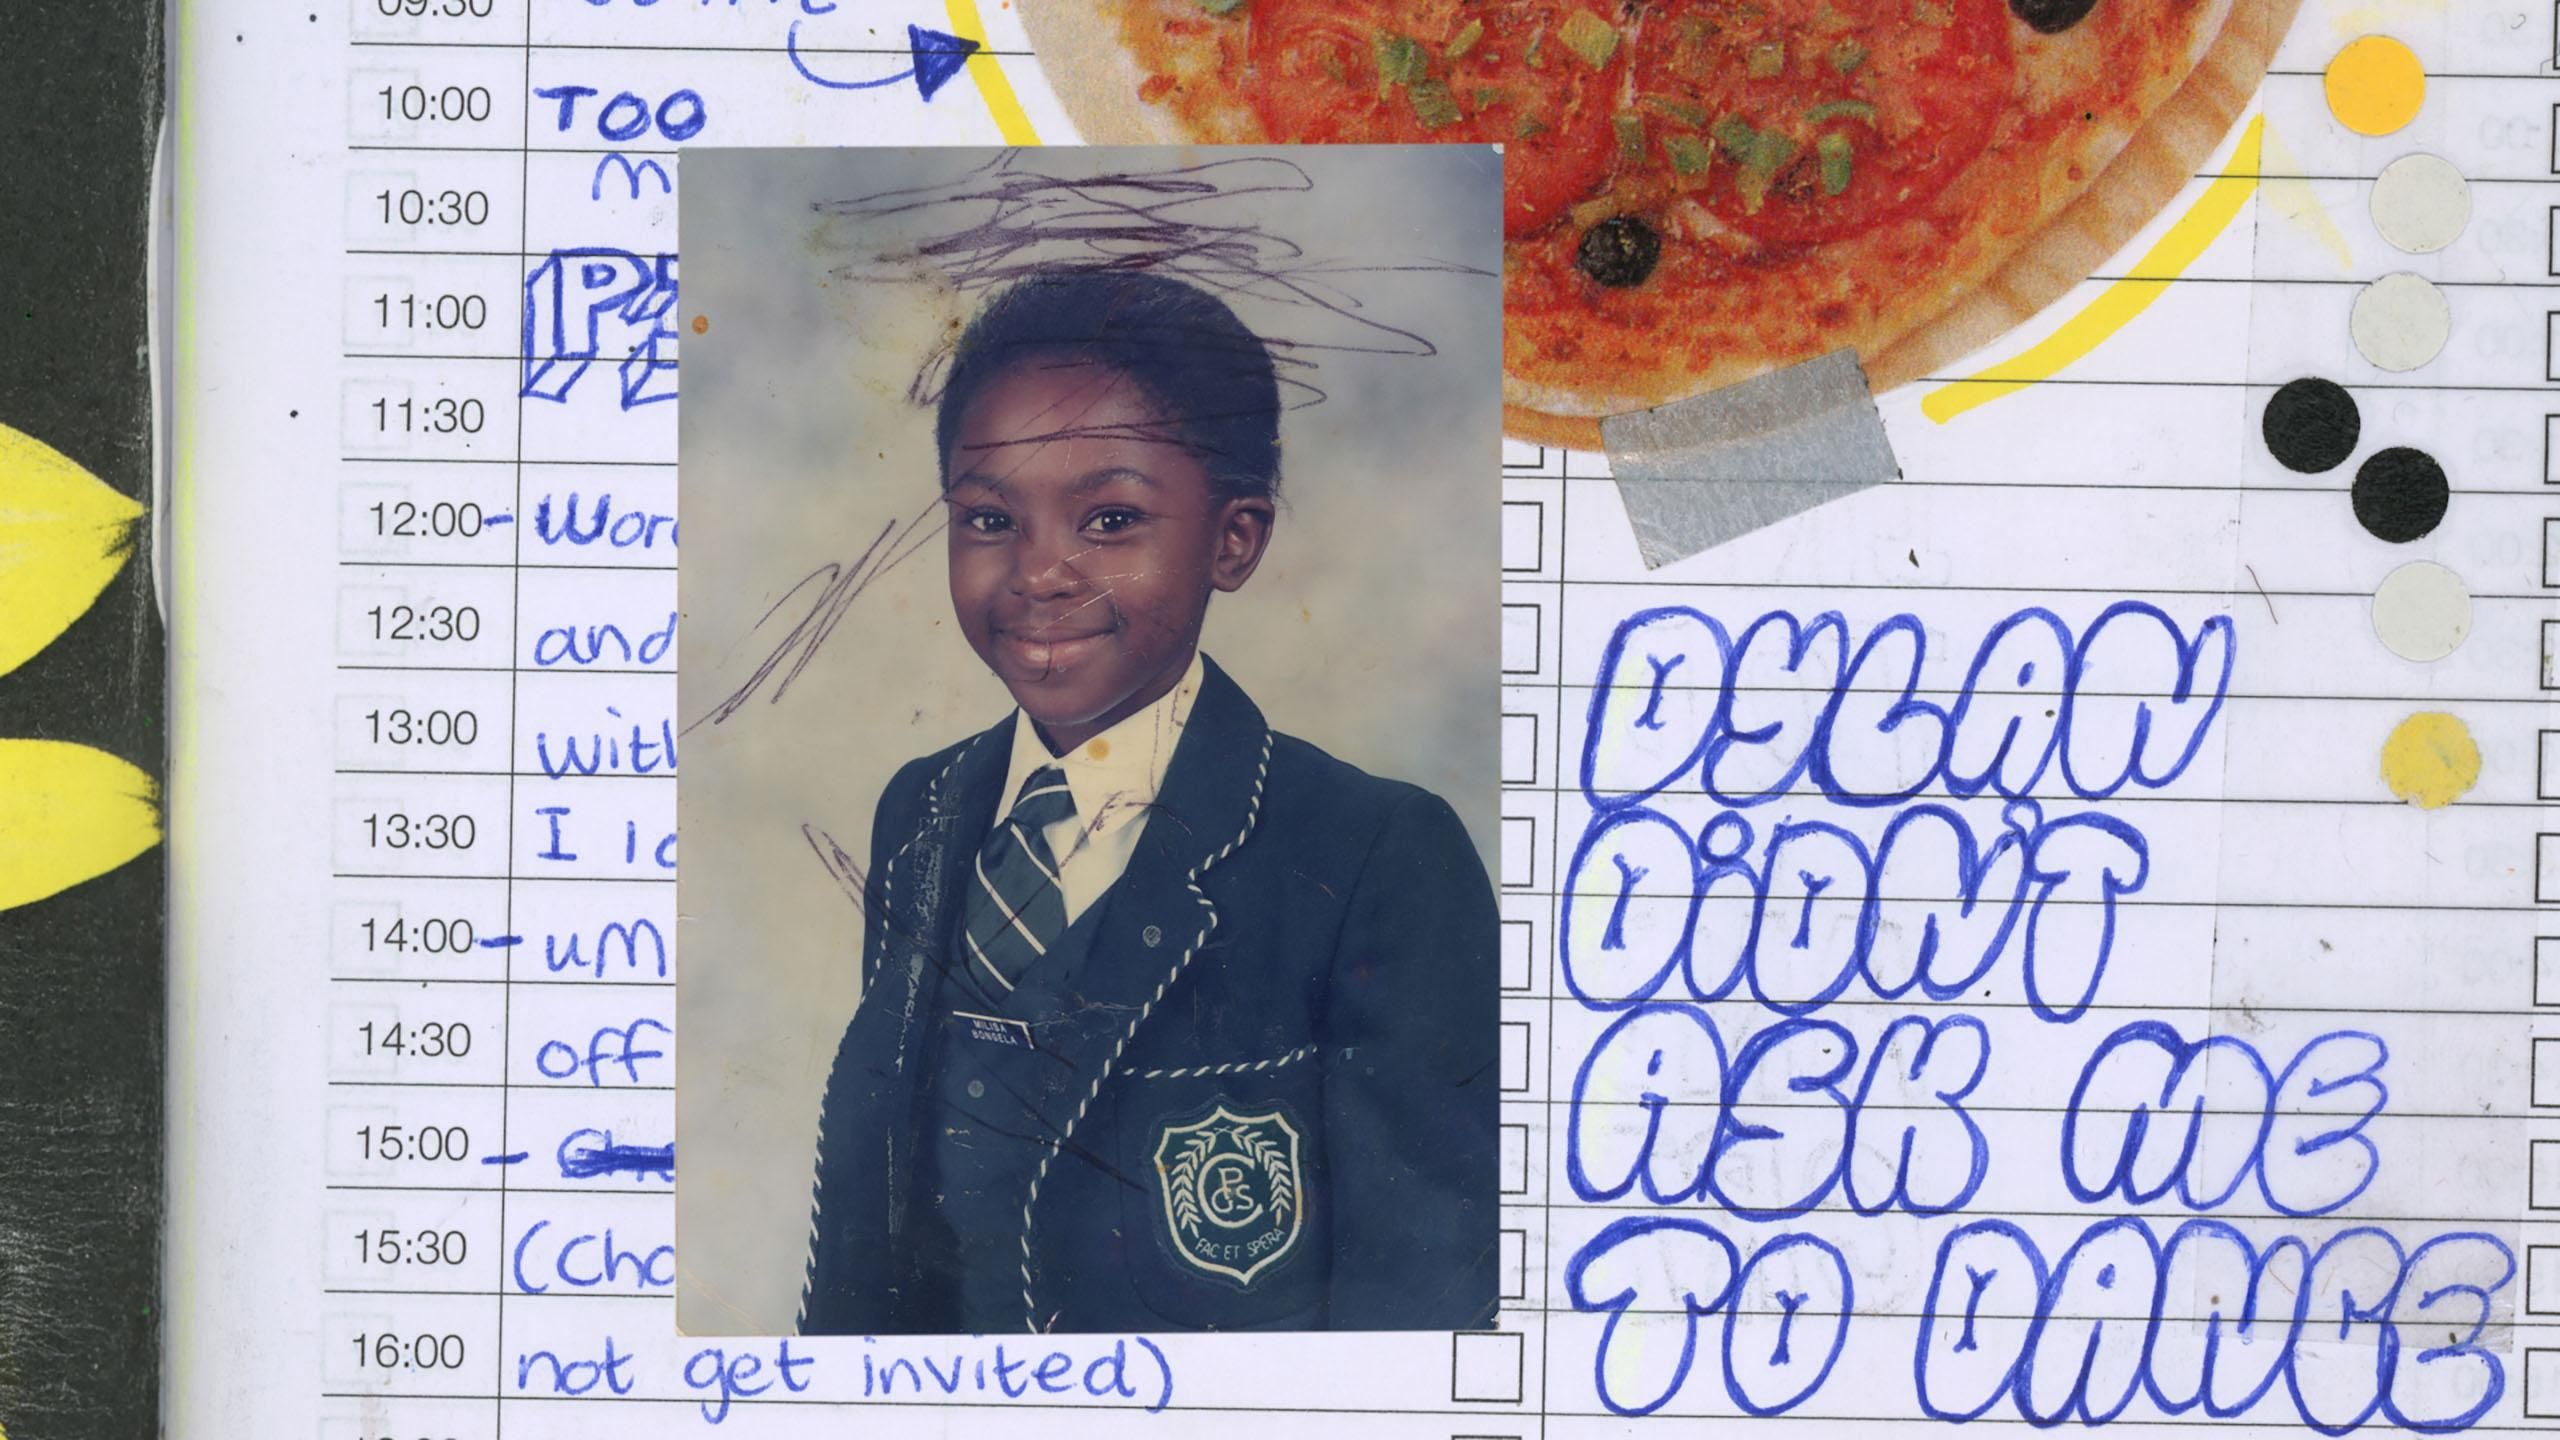 09:30
10:00 TOO
10:30
11:00
11:30
12:00-
12:30 and
13:00
13:30 I
14:00-
14:30 off
15:00 -
15:30
16:00 not get invited)
MILISA
BONGELA
FAC ET SPERA
DYLAN
DiDN'T
ASK ME
TO DANCE